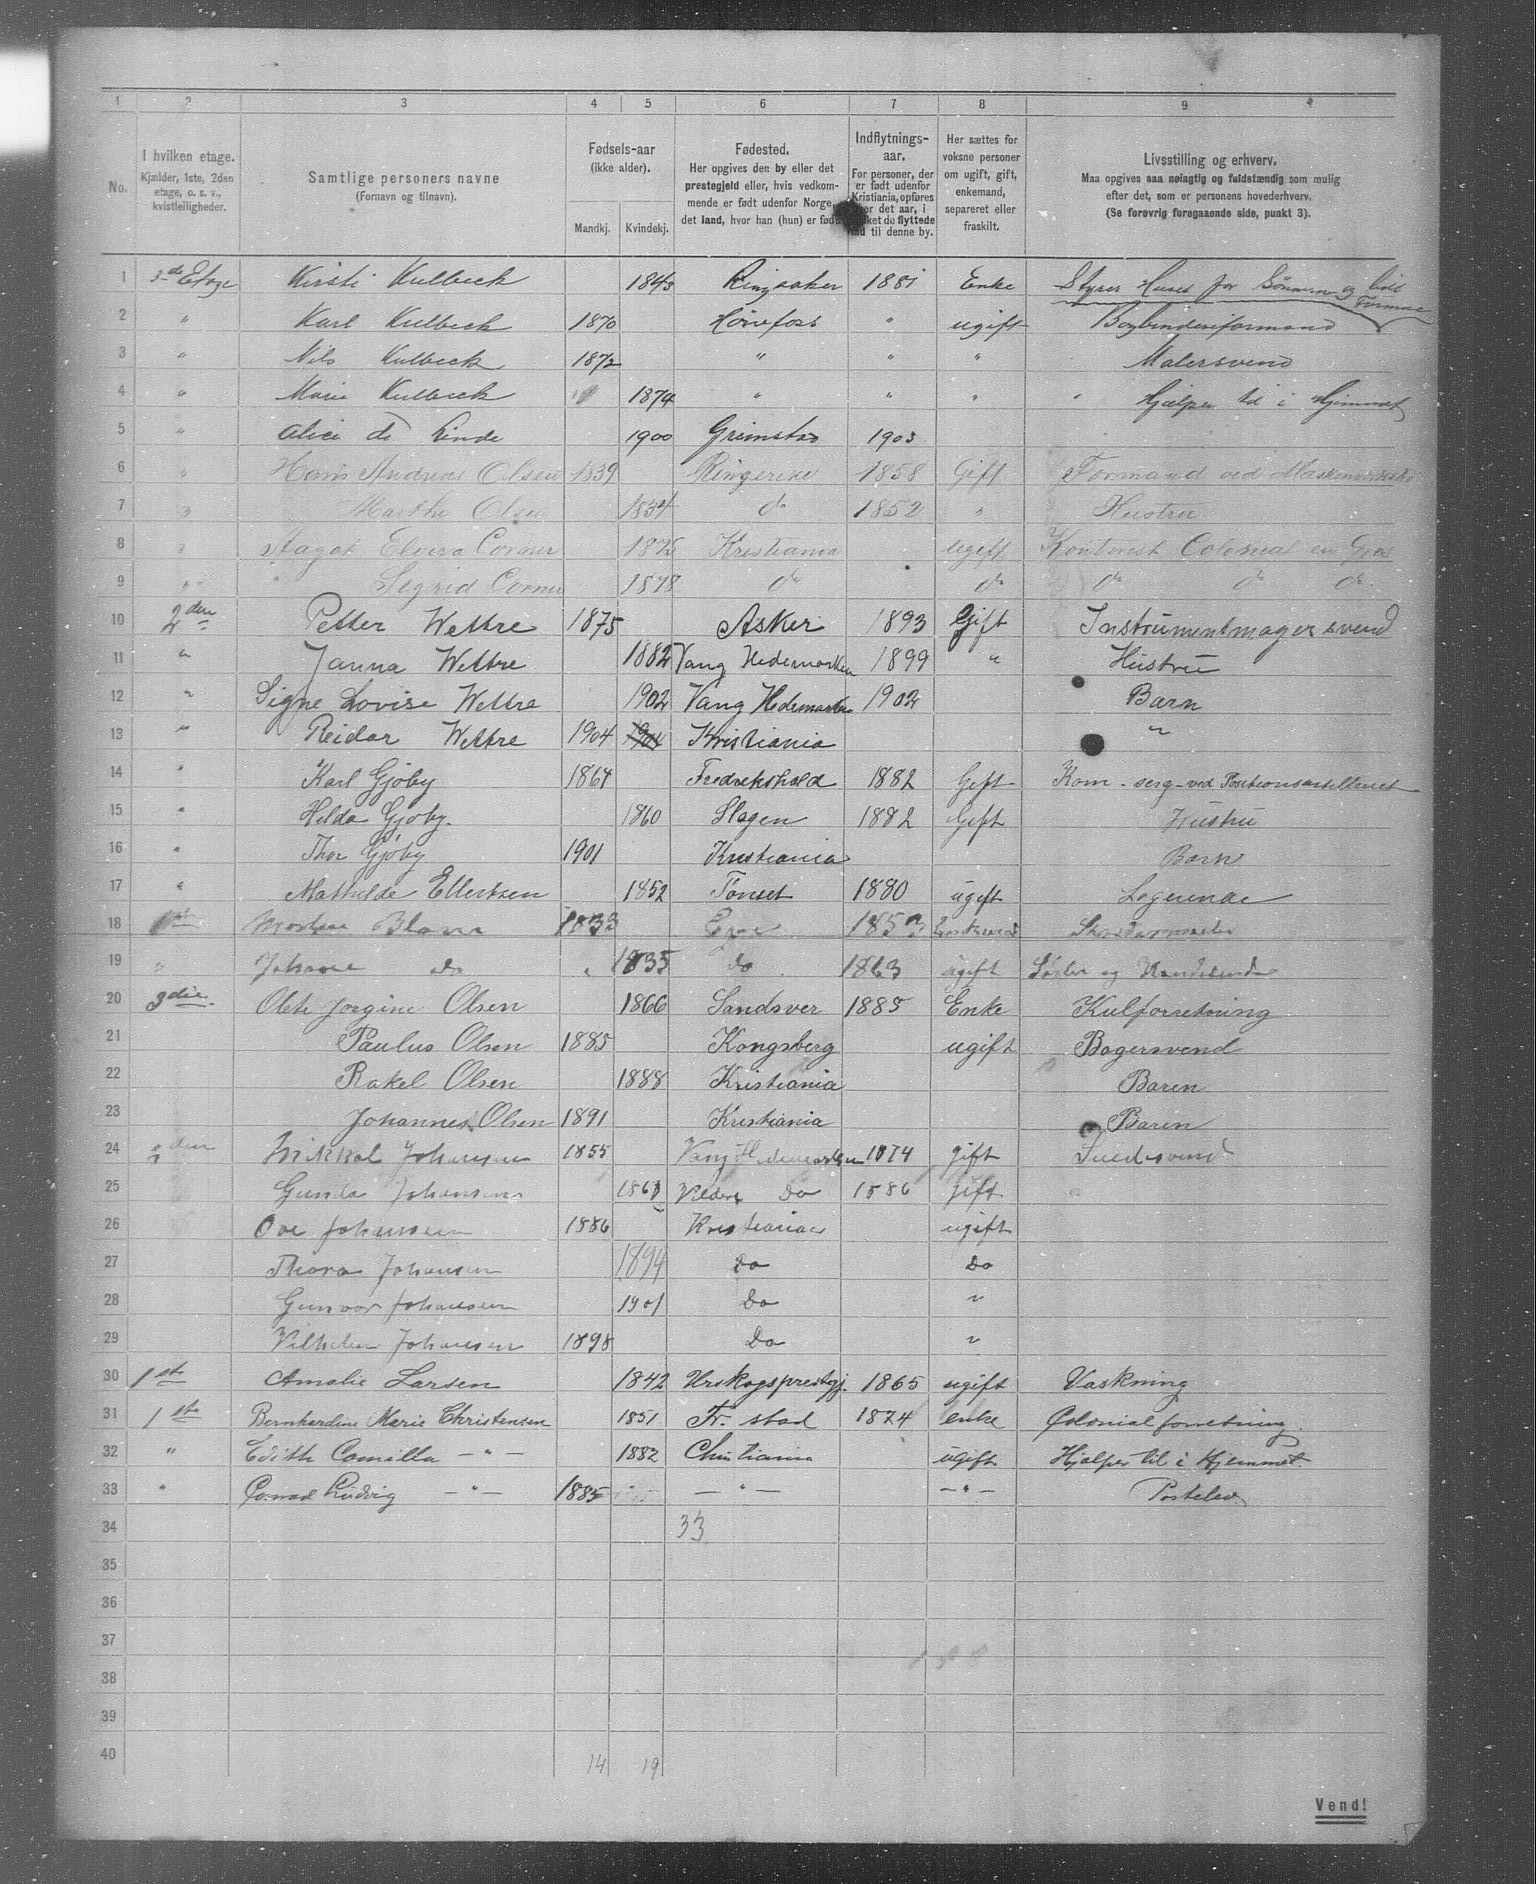 1 2 3 4 5 6 7 8 9
No. I hvilken etage. Kjælder, 1ste, 2den etage, o. s. v., kvistleiligheder. Samtlige personers navne (Fornavn og tilnavn). Fødsels-aar (ikke alder). Mandkj. Kvindekj. Fødested. Her opgives den by eller det prestegjeld eller, hvis vedkommende er født udenfor Norge, det land, hvor han (hun) er født Indflytnings-aar. For personer, der er født udenfor Kristiania, opføres det aar, i de flyttede til denne by. Her sættes for voksne personer om ugift, gift, enkemand, separeret eller fraskilt. Livsstilling og erhverv. Maa opgives saa nøiagtig og fuldstændig som mulig efter det, som er personens hovederhverv. (Se forøvrig foregaaende side, punkt 3).
1 3de Etage Kirsti Kulbeck 1843 Ringsaker 1881 Enke Styrer Huset for Sønnen og
2 " Karl Kulbeck 1870 Hønefoss " ugift Bogbinderiformand
3 " Nils Kulbeck 1872 " " " Malersvend
4 " Marie Kulbeck 1874 " " " Hjælper til i Hjemmet
5 " Alice de Linde 1900 Grimstad 1903
6 " Hans Andreas Olsen 1839 Ringerike 1858 Gift Formand ved
7 " Marthe Olsen 1834 do 1852 " Hustru
8 " Aagot Elvira Corner 1875 Kristiania ugift Kontorist Colonial en Gros
9 " Sigrid Corner 1878 do do do do do
10 2den Petter Wettre 1875 Asker 1893 Gift Instrumentmagersvend
11 " Janna Wettre 1882 Vang Hedemarken 1899 " Hustru
12 " Signe Lovise Wettre 1902 Vang Hedemarken 1902 Barn
13 " Reidar Wettre 1904 1904 Kristiania "
14 " Karl Gjøby 1864 Fredrikshald 1882 Gift Kom. serg. ved Positionsartilleriet
15 " Hilda Gjøby. 1860 Slagen 1882 Gift Hustru
16 " Thor Gjøby 1901 Kristiania Barn
17 " Mathilde Ellertsen 1852 Tønset 1880 ugift Logerende
18 1ste 1833
19 " Johane Do 1835 do 1863 ugift Søster og
20 3die Olete Jorgine Olsen 1866 Sandsver 1885 Enke Kulforretning
21 Paulus Olsen 1885 Kongsberg ugift Bagersvend
22 Rakel Olsen 1888 Kristiania Baren
23 Johannes Olsen 1891 Kristiania Baren
24 2den Mikkel Johansen 1855 Vang Hedemarken 1874 gift
25 Gunda Johansen 1861 Do 1886 gift
26 Ove Johansen 1886 Kristiania ugift
27 Thora Johansen 1894 Do Do
28 Gunvor Johansen 1901 Do "
29 Vilhelm Johansen 1898 Do "
30 1ste Amalie Larsen 1842 Urskogsprestgj. 1865 ugift Vaskning
31 1ste Bernhardine Marie Christensen 1851 Fr. stad 1874 enke Colonialforretning.
32 " Edith Camilla — " — 1882 Christiania ugift Hjælper til i Hjemmet.
33 " Conrad Ludvig — " — 1885 — " — — " — Postelev
34 33
35
36
37
38
39
40 14 19
Vend!